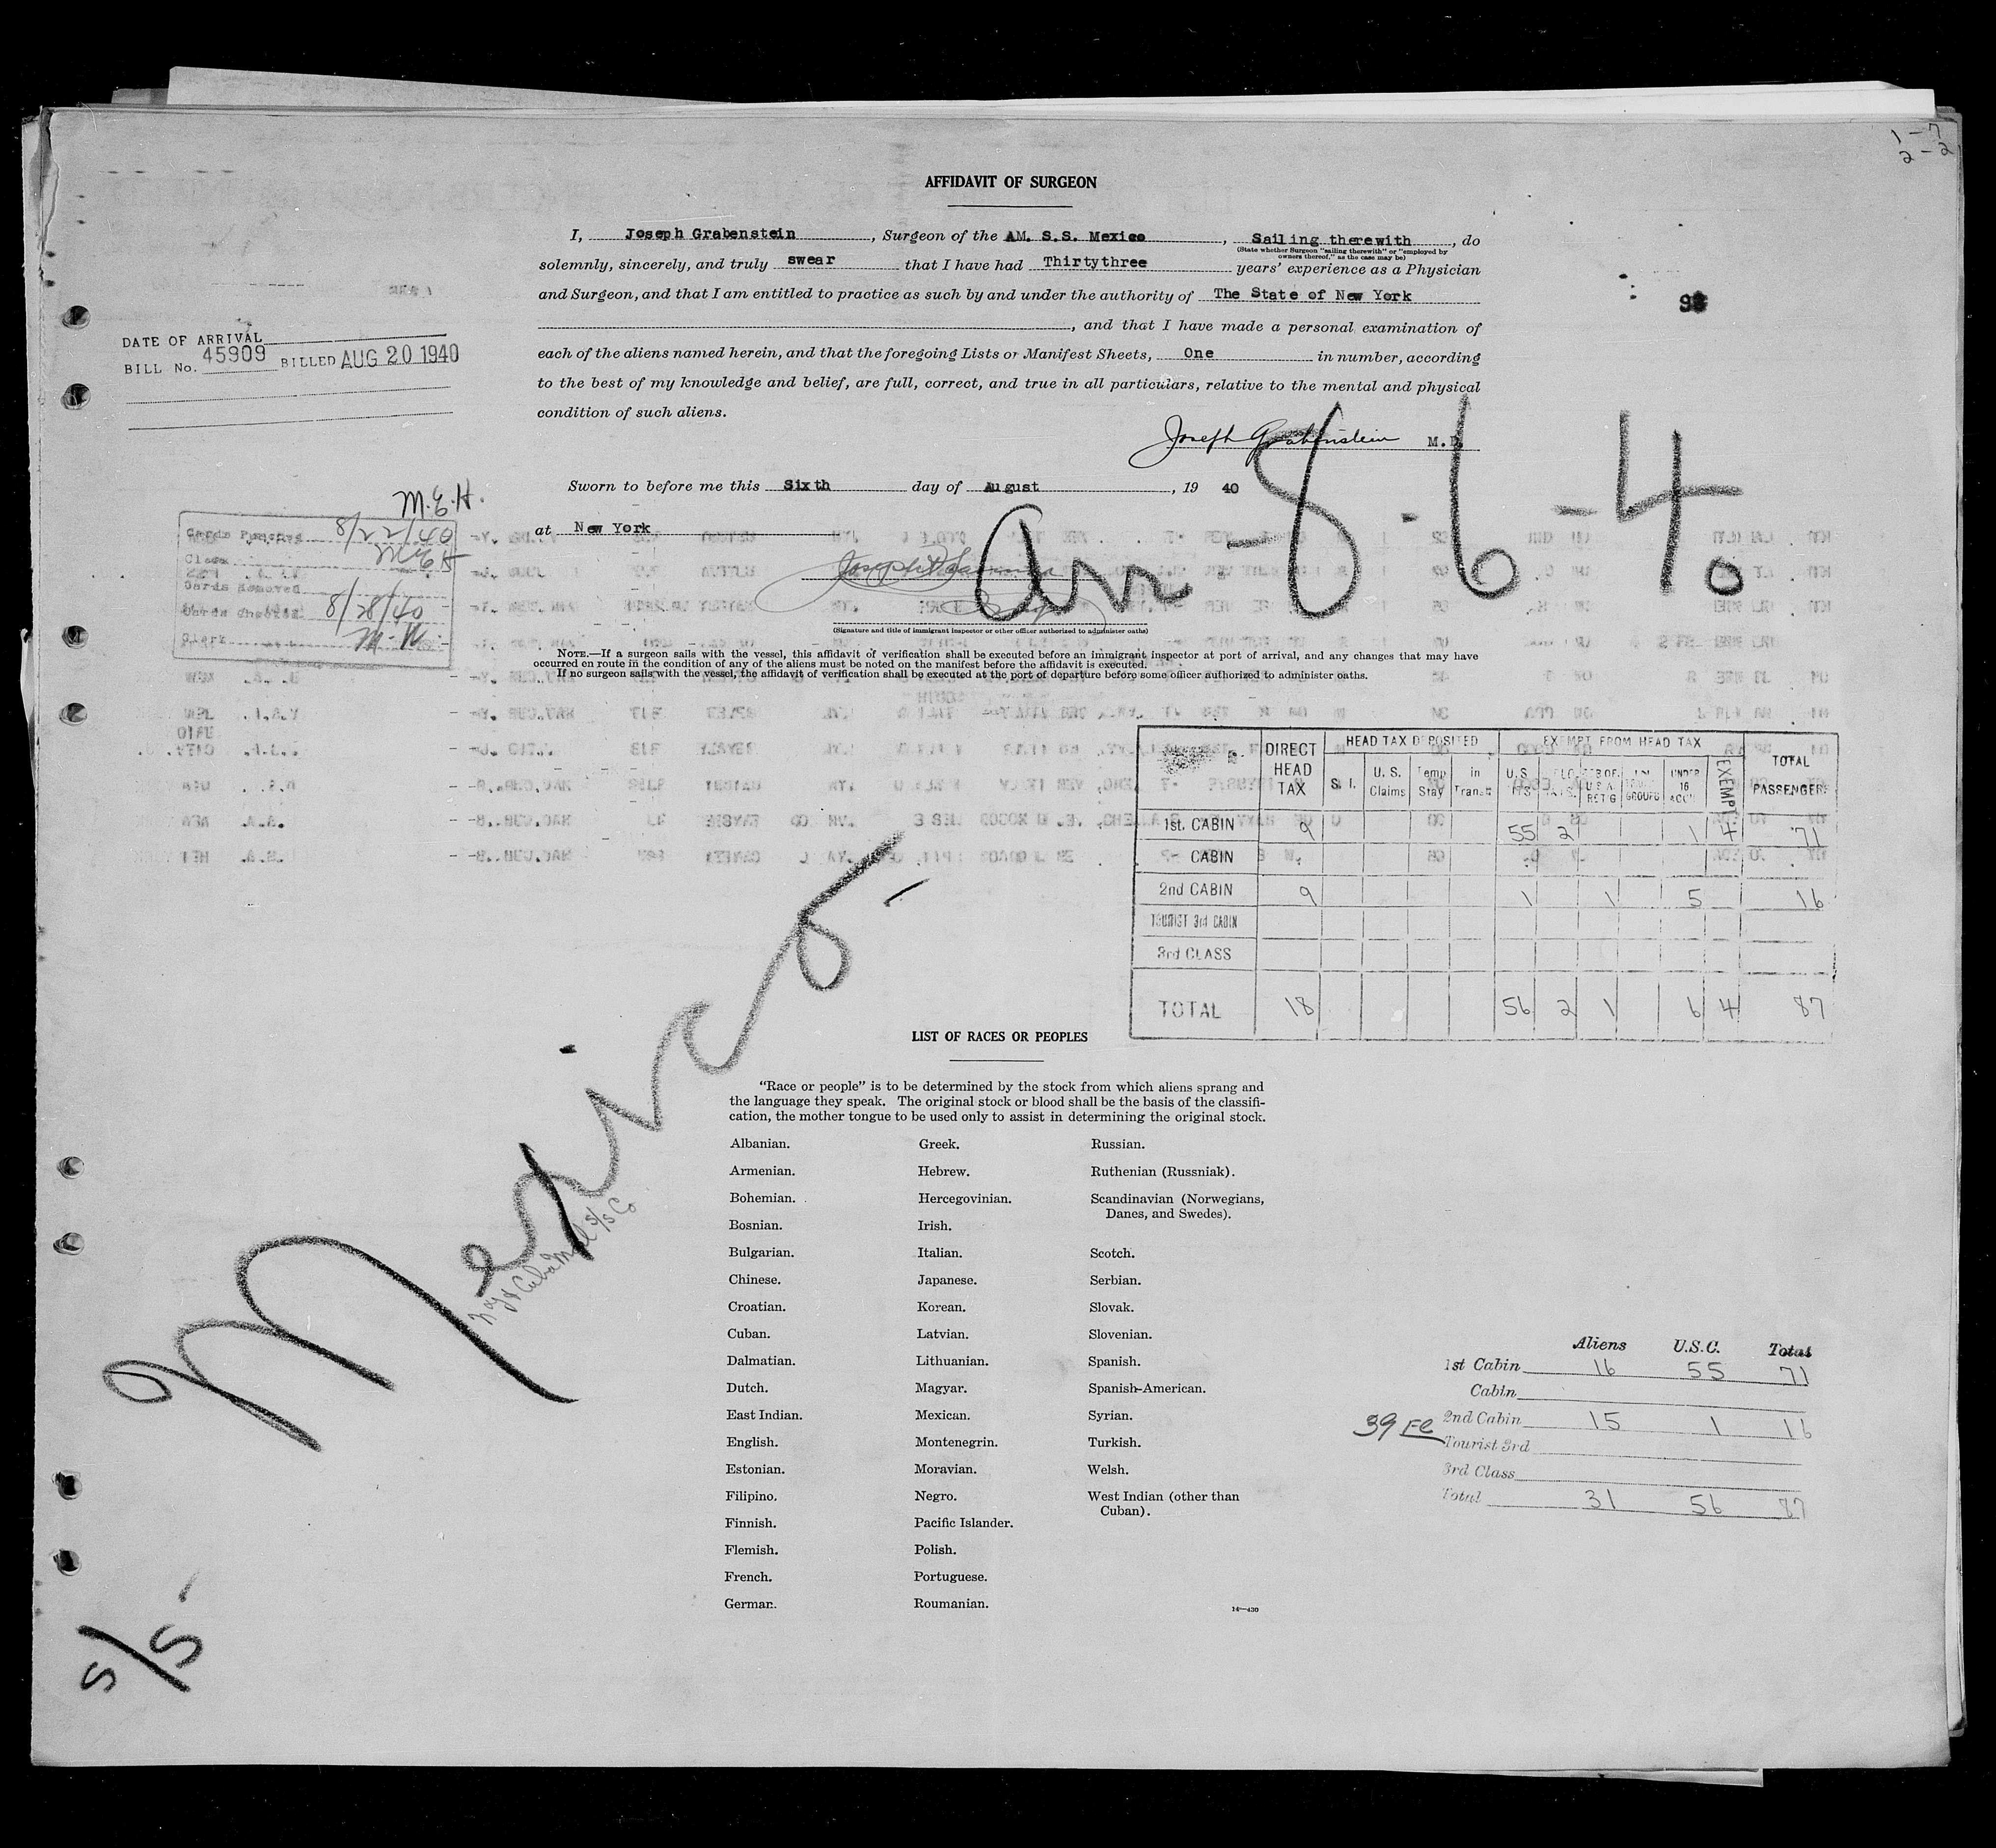 1 - 7
2 - 2
AFFIDAVIT OF SURGEON
I, Joseph Grabenstein, Surgeon of the AM. S.S. Mexico, Sailing therewith, do
(State whether Surgeon "sailing therewith" or "employed by
owners thereof," as the case may be)
solemnly, sincerely, and truly swear that I have had Thirtythree years' experience as a Physician
and Surgeon, and that I am entitled to practice as such by and under the authority of The State of New York
, and that I have made a personal examination of
each of the aliens named herein, and that the foregoing Lists or Manifest Sheets, One in number, according
to the best of my knowledge and belief, are full, correct, and true in all particulars, relative to the mental and physical
condition of such aliens.
Joseph Grabenstein M.D.
Sworn to before me this Sixth day of August, 19 40
at New York
(Signature and title of immigrant inspector or other officer authorized to administer oaths)
NOTE.—If a surgeon sails with the vessel, this affidavit of verification shall be executed before an immigrant inspector at port of arrival, and any changes that may have
occurred en route in the condition of any of the aliens must be noted on the manifest before the affidavit is executed.
If no surgeon sails with the vessel, the affidavit of verification shall be executed at the port of departure before some officer authorized to administer oaths.
DATE OF ARRIVAL
BILL No. 45909 BILLED AUG 20 1940
M.E.H.
Cards Punched 8/22/40
Clerk MEH
Cards Removed
Cards Checked 8/28/40
Clerk M.W.
Arr - 8 - 6 - 40
DIRECT HEAD TAX
HEAD TAX DEPOSITED
EXEMPT FROM HEAD TAX
TOTAL PASSENGERS
S. I.
U. S. Claims
Temp Stay
in Transit
U.S.
UNDER 16
EXEMPT
1st. CABIN 9 55 2 1 4 71
CABIN
2nd CABIN 9 1 1 5 16
TOURIST 3rd CABIN
3rd CLASS
TOTAL 18 56 2 1 6 4 87
Mexico
N.Y. & Cuba Mail S/S Co
S/S
LIST OF RACES OR PEOPLES
"Race or people" is to be determined by the stock from which aliens sprang and
the language they speak. The original stock or blood shall be the basis of the classifi-
cation, the mother tongue to be used only to assist in determining the original stock.
Albanian.
Armenian.
Bohemian.
Bosnian.
Bulgarian.
Chinese.
Croatian.
Cuban.
Dalmatian.
Dutch.
East Indian.
English.
Estonian.
Filipino.
Finnish.
Flemish.
French.
German.
Greek.
Hebrew.
Hercegovinian.
Irish.
Italian.
Japanese.
Korean.
Latvian.
Lithuanian.
Magyar.
Mexican.
Montenegrin.
Moravian.
Negro.
Pacific Islander.
Polish.
Portuguese.
Roumanian.
Russian.
Ruthenian (Russniak).
Scandinavian (Norwegians,
Danes, and Swedes).
Scotch.
Serbian.
Slovak.
Slovenian.
Spanish.
Spanish-American.
Syrian.
Turkish.
Welsh.
West Indian (other than
Cuban).
14—430
Aliens U.S.C. Total
1st Cabin 16 55 71
Cabin
39 FC 2nd Cabin 15 1 16
Tourist 3rd
3rd Class
Total 31 56 87